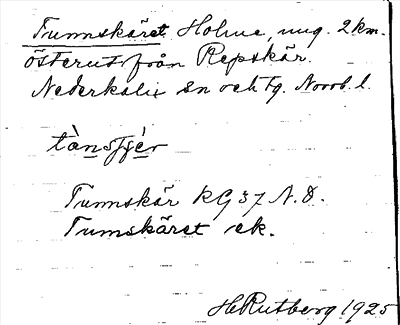 Tunnskäret. Holme, ung. 2 km.
österut från Repskär.
Nederkalix sn och tg. Norrb. l.
Tunnskär RG 37 N.O.
Tunnskäret ek.
H Rutberg 1925